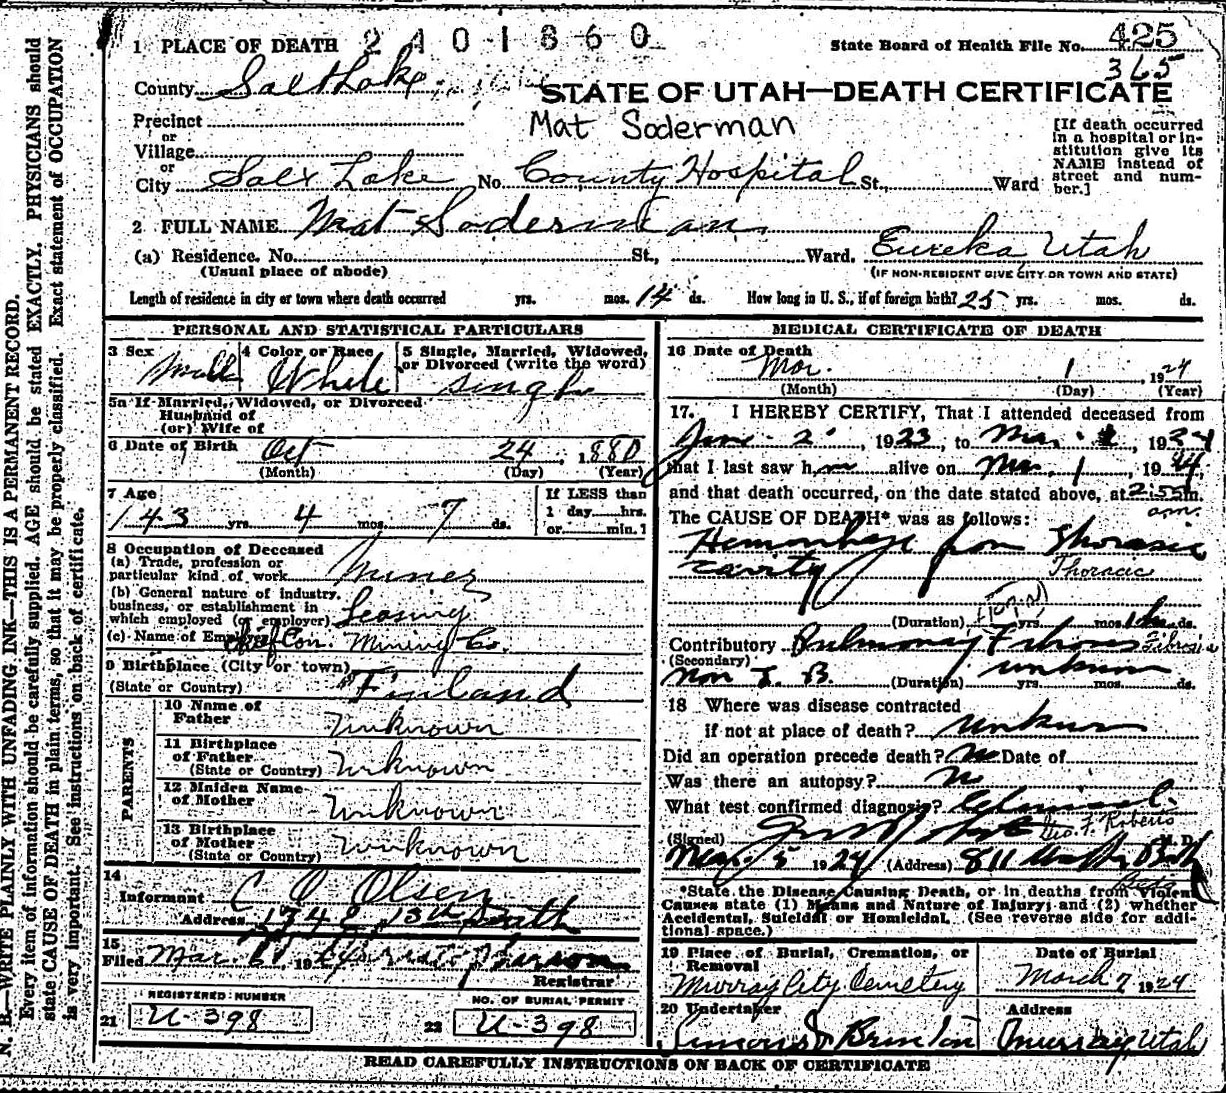 N. B.—WRITE PLAINLY WITH UNFADING INK—THIS IS A PERMANENT RECORD.
Every item of information should be carefully supplied. AGE should be stated EXACTLY. PHYSICIANS should
state CAUSE OF DEATH in plain terms, so that it may be properly classified. Exact statement of OCCUPATION
is very important. See instructions on back of certificate.
1 PLACE OF DEATH 2401860
State Board of Health File No. 425
365
County Salt Lake
STATE OF UTAH—DEATH CERTIFICATE
Mat Soderman
Precinct
or
Village
or
City Salt Lake No. County Hospital St., Ward
[If death occurred
in a hospital or in-
stitution give its
NAME instead of
street and num-
ber.]
2 FULL NAME Mat Soderman
(a) Residence. No. St., Ward. Eureka Utah
(Usual place of abode) (IF NON-RESIDENT GIVE CITY OR TOWN AND STATE)
Length of residence in city or town where death occurred yrs. mos. 14 ds. How long in U. S., if of foreign birth? 25 yrs. mos. ds.
PERSONAL AND STATISTICAL PARTICULARS
3 Sex Male
4 Color or Race White
5 Single, Married, Widowed,
or Divorced (write the word)
Single
5a If Married, Widowed, or Divorced
Husband of
(or) Wife of
6 Date of Birth Oct 24, 1880
(Month) (Day) (Year)
7 Age
43 yrs. 4 mos. 7 ds.
If LESS than
1 day hrs.
or min.?
8 Occupation of Deceased
(a) Trade, profession or
particular kind of work Miner
(b) General nature of industry,
business, or establishment in
which employed (or employer) Leasing
(c) Name of Employer Chief Con. Mining Co.
9 Birthplace (City or town)
(State or Country) Finland
PARENTS
10 Name of
Father Unknown
11 Birthplace
of Father
(State or Country) Unknown
12 Maiden Name
of Mother Unknown
13 Birthplace
of Mother
(State or Country) Unknown
14
Informant C O Olsen
Address 1748 13th South
15
Filed Mar. 6 1924
Registrar
REGISTERED NUMBER
21 U-398
NO. OF BURIAL PERMIT
22 U-398
MEDICAL CERTIFICATE OF DEATH
16 Date of Death
Mar. 1, 1924
(Month) (Day) (Year)
17. I HEREBY CERTIFY, That I attended deceased from
2, 1923, to Mar. 1, 1924
that I last saw him alive on Mar. 1, 1924,
and that death occurred, on the date stated above, at 2:55 am.
am.
The CAUSE OF DEATH* was as follows:
Hemorrhage from Thorasic
cavity Thoracic
(Duration) yrs. mos. ds.
Contributory Pulmonary Fibrosis Fibrosis
(Secondary) unknown
Non T. B. (Duration) yrs. mos. ds.
18 Where was disease contracted
if not at place of death? unknown
Did an operation precede death? No Date of
Was there an autopsy? No
What test confirmed diagnosis? Clinical
(Signed) Geo. F. Roberts M. D.
Mar. 5 1924 (Address) 811
*State the Disease Causing Death, or in deaths from Violent
Causes state (1) Means and Nature of Injury; and (2) whether
Accidental, Suicidal or Homicidal. (See reverse side for addi-
tional space.)
19 Place of Burial, Cremation, or
Removal
Murray City Cemetery
Date of Burial
March 7 1924
20 Undertaker
Address
Murray, Utah
READ CAREFULLY INSTRUCTIONS ON BACK OF CERTIFICATE